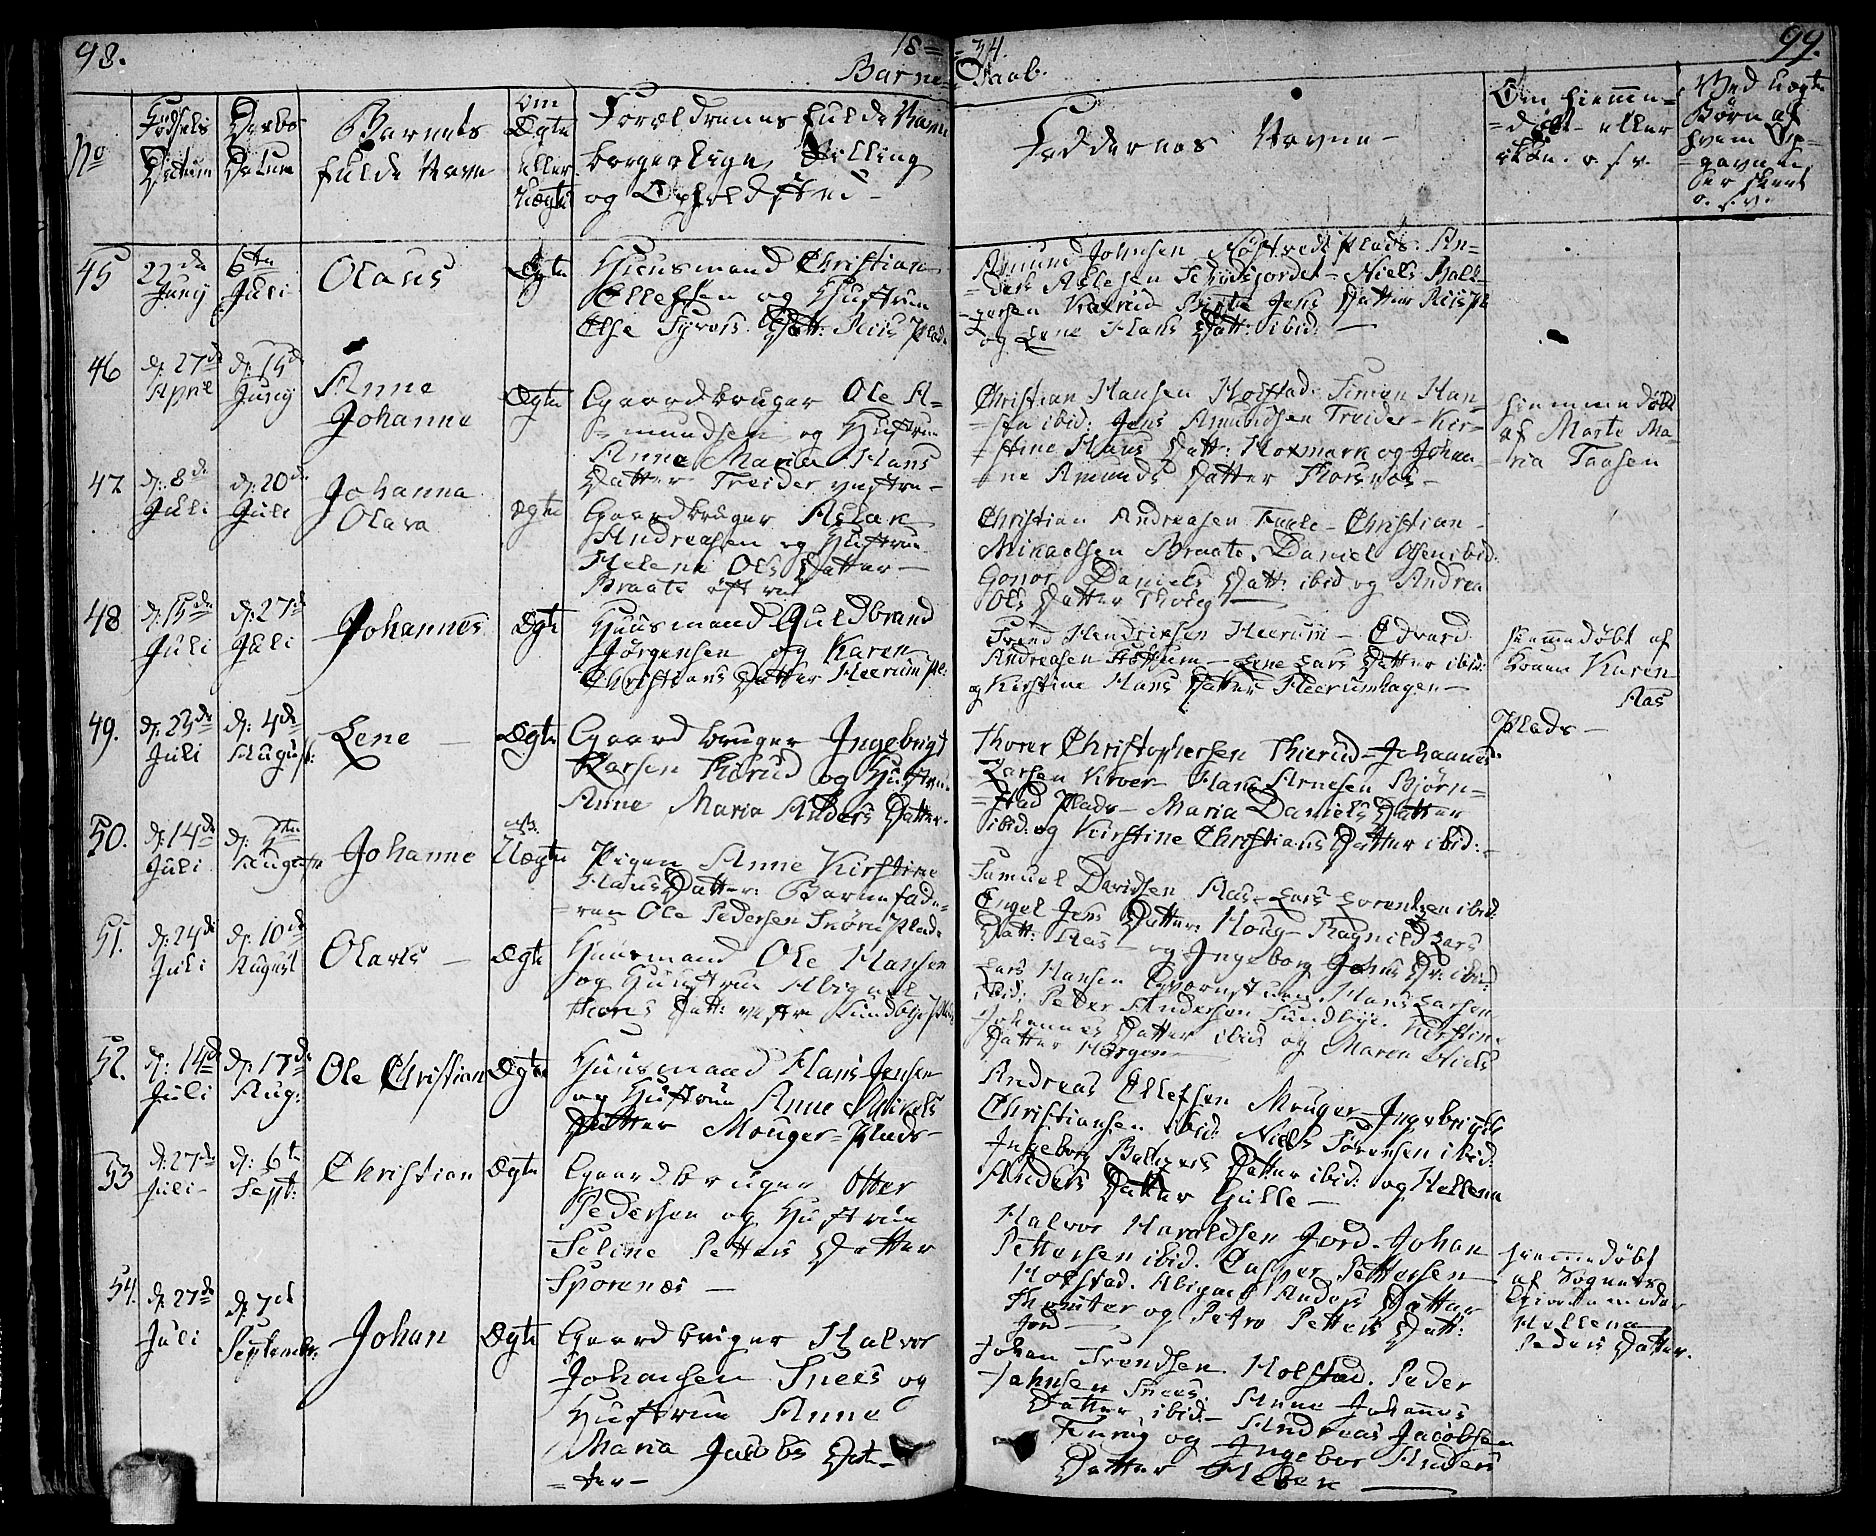 98.
18=
=34.
99.
Barne=
Daab.
No
Fødsels
Datum
Daabs
Datum
Barnets
fulde Navn
om
Ægte
eller
Uægte
Forældrenes fulde Navn
borgerlige Stilling
og Opholdsted
Faddernes Navne
Om hjemme=
=døbt eller
ikke. o. s. v.
Ved uægte
Børn af
hvem Op=
=gavelse
er skeet
o. s. v.
45
22de
Junij
6te
Juli
Olaus
Ægte
Huusmand Christian
Ellefsen og Hustrue
Else Datt: Riis Plads
Amund Johnsen Plads: An=
Niels Hall=
=gersen Jens Datter Riispl
og Lene Hans Datt: ibid:
46
d: 27de
April
d: 15de
Junij
Anne
Johanne
Ægte
Gaardbruger Ole A=
=mundsen og Hustrue
Anne Maria Hans
Datter Treider vestre
Christian Hansen Holstad. Simen Han=
ibid: Jens Amundsen Treider Kir=
=stine Hans Datt: og Johan=
=ne Amunds Datter
Hjemmedøbt
af Marte Ma=
=ria Taasen
47
d: 8de
Juli
d: 20de
Juli
Johanna
Olava
Ægte
Gaardbruger Aslak
Andreasen og Hustrue
Helene Ols Datter
Braate østre
Christian Andreasen Christian
Mikaelsen Braate. Daniel Olsen ibid:
Daniels Datt: ibid og Andrea
Ols Datter
48
d: 15de
Juli
d: 27de
Juli
Johannes
Ægte
Huusmand Guldbrand
Jørgensen og Karen
Christians Datter Heerum pl:
Trond Hendriksen Heerum Edvard
Andreasen Lene Lars Datter ibid:
og Kirstine Hans Datter Heerumhagen
Hjemmedøbt af
Konen Karen
Aas
Plads
49.
d: 23de
Juli
d: 4de
August:
Lene
Ægte
Gaardbruger Ingebrigt
Larsen Thirud og Hustrue
Anne Maria Anders Datter.
Thorer Christophersen Thierud Johannes
Larsen Kroer Hans Arnesen Bjørn=
=stad Plads Maria Daniels Datter
ibid: og Kirstine Christians Datter ibid:
50.
d: 14de
Juli
August
Johanne
Uægte
Pigen Anne Kirstine
Hans Datter: Barnefade=
=ren Ole Pedersen Plads
Samuel Davidsen Aas Lars Lorentzen ibid
Engel Jens Datter: Houg Ragnild Lars
Datt: Aas og Ingeborg Johns Dr: ibid:
51.
d: 24de
Juli
d: 10de
August
Olavis
Ægte
Huusmand Ole Hansen
og Huustrue Abigael
Datt: vestre Sundbye Plads
Lars Hansen Hans Larsen
ibid: Peder Andersen Sundbye. Kirstine
Johannes Datter ibid og Maren Niels
Datter Horgen
52.
d: 14de
Juli
d: 17de
Aug:
Ole Christian
Ægte
Huusmand Hans Jensen
og Hustrue Anne Mikels
Datter Mouger Plads
Andreas Ellefsen Mouger Ingebrigt
Christiansen ibid: Niels Sørensen ibid:
Ingeborg Datter ibid: og Hellena
Anders Datter
53
d: 27de
Juli
d: 6te
Sept:
Christian
Ægte
Gaardbruger Otter
Pedersen og Hustrue
Seline Petters Datter
Sporenæs
Halvor Haraldsen Jord. Johan
Pettersen ibid. Casper Pettersen
Holstad. Abigael Anders Datter
og Petra Petters Datt:
Jord
Hjemmedøbt
af Sognets
Hellena
Peders Datter.
54.
d: 27de
Juli
d: 7de
September:
Johan
Ægte
Gaardbruger Halvor
Johansen Snees og
Hustrue Anne
Maria Jacobs Dat=
=ter
Johan Trondsen Holstad. Peder
Johnsen Snees. Anne Johannes
Datter ibid. Andreas Jacobsen
og Ingebor Anders
Datter